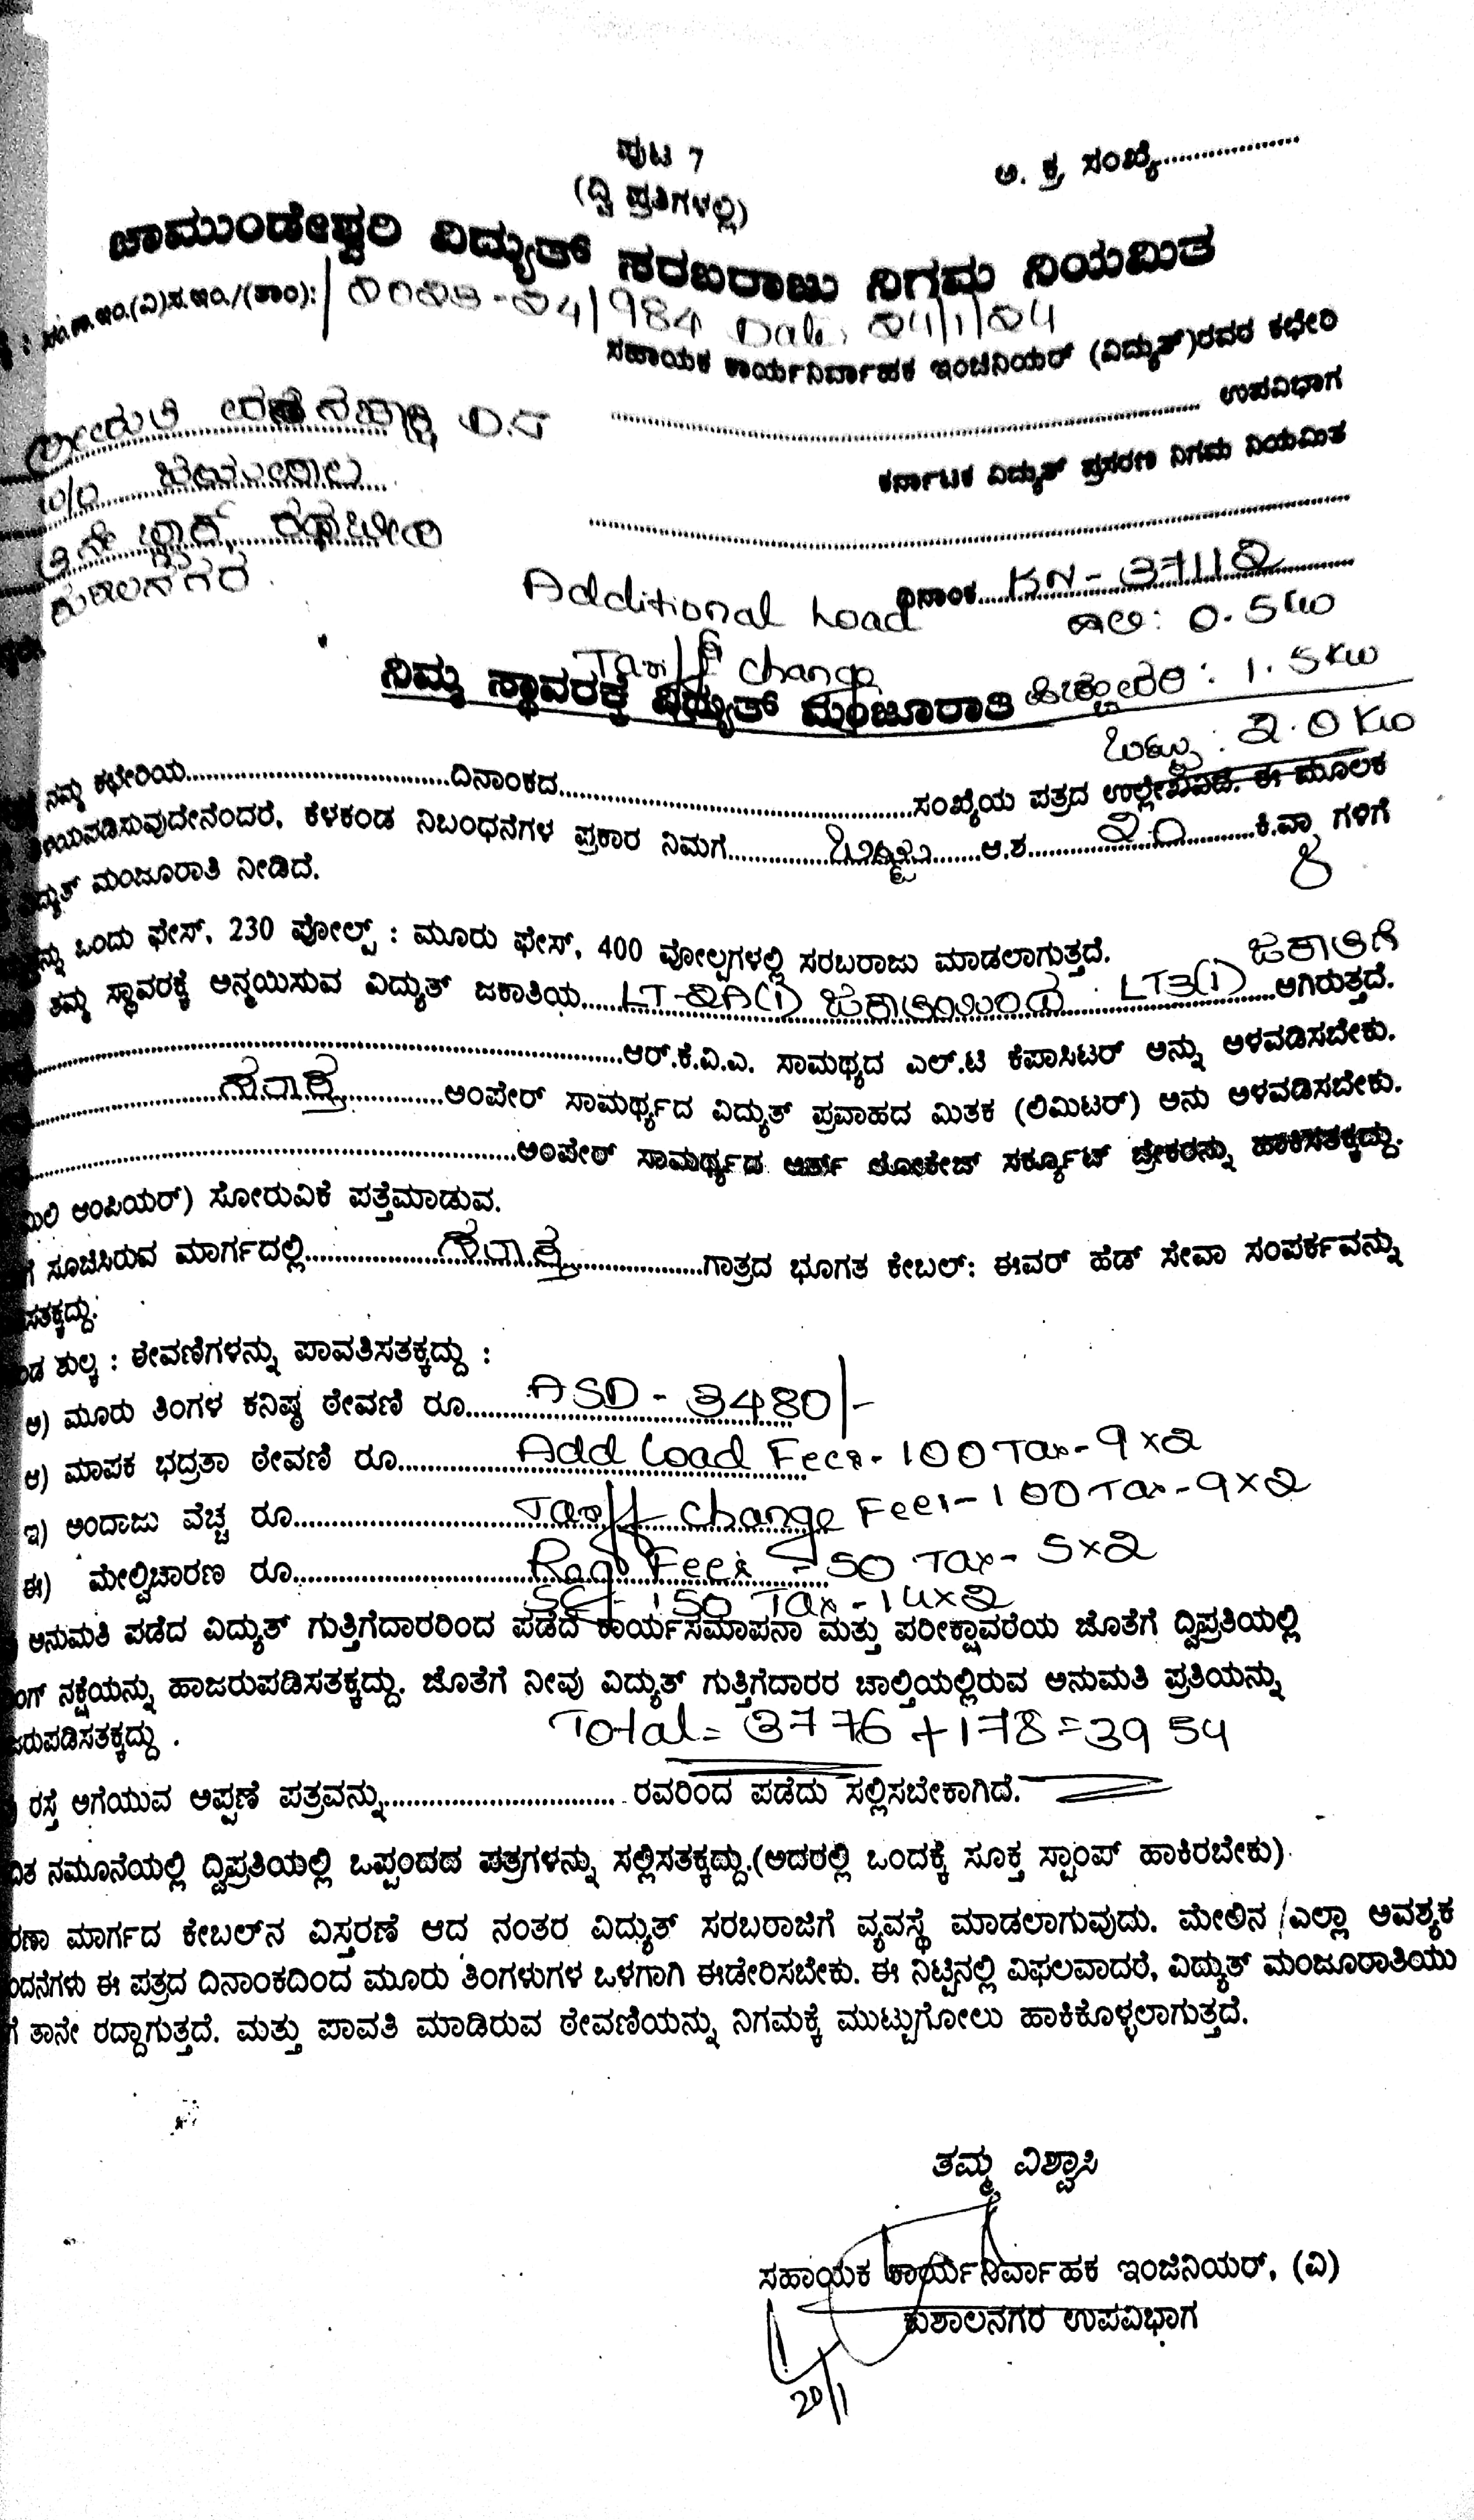 ಪುಟ 7
(ದ್ವಿ ಪ್ರತಿಗಳಲ್ಲಿ)
ಅ. ಕ್ರ ಸಂಖ್ಯೆ....................
ಚಾಮುಂಡೇಶ್ವರಿ ವಿದ್ಯುತ್ ಸರಬರಾಜು ನಿಗಮ ನಿಯಮಿತ
ಇಂ.(ವಿ)ಸ.ಇಂ./(ತಾಂ):/ 2023-24/984 Date, 24/1/24
ಸಹಾಯಕ ಕಾರ್ಯನಿರ್ವಾಹಕ ಇಂಜಿನಿಯರ್ (ವಿದ್ಯುತ್)ರವರ ಕಛೇರಿ
.................... ಉಪವಿಭಾಗ
ಕರ್ನಾಟಕ ವಿದ್ಯುತ್ ಪ್ರಸರಣ ನಿಗಮ ನಿಯಮಿತ
ಶ್ರೀಮತಿ
ಕುಶಾಲನಗರ
ದಿನಾಂಕ....KN-37112....
Additional Load
ಹಾಲಿ: 0.5 KW
Tariff change
ನಿಮ್ಮ ಸ್ಥಾವರಕ್ಕೆ ವಿದ್ಯುತ್ ಮಂಜೂರಾತಿ
ಹೆಚ್ಚುವರಿ: 1.5 KW
ಒಟ್ಟು: 2.0 KW
ನಮ್ಮ ಕಛೇರಿಯ....................ದಿನಾಂಕದ....................ಸಂಖ್ಯೆಯ ಪತ್ರದ ಉಲ್ಲೇಖವಿದೆ. ಈ ಮೂಲಕ
ಯಪಡಿಸುವುದೇನೆಂದರೆ, ಕೆಳಕಂಡ ನಿಬಂಧನೆಗಳ ಪ್ರಕಾರ ನಿಮಗೆ..........ಒಟ್ಟು.....ಆ.ಶ.....2.0.....ಕಿ.ವ್ಯಾ ಗಳಿಗೆ
ದ್ಯುತ್ ಮಂಜೂರಾತಿ ನೀಡಿದೆ.
ನ್ನು ಒಂದು ಫೇಸ್, 230 ವೋಲ್ಟ್ : ಮೂರು ಫೇಸ್, 400 ವೋಲ್ಟಗಳಲ್ಲಿ ಸರಬರಾಜು ಮಾಡಲಾಗುತ್ತದೆ.
ತಮ್ಮ ಸ್ಥಾವರಕ್ಕೆ ಅನ್ವಯಿಸುವ ವಿದ್ಯುತ್ ಜಕಾತಿಯ.....LT-2A(i) ಜಕಾತಿಯಿಂದ LT3(i) ಜಕಾತಿಗೆ.....ಆಗಿರುತ್ತದೆ.
....................ಆರ್.ಕೆ.ವಿ.ಎ. ಸಾಮಥ್ಯದ ಎಲ್.ಟಿ ಕೆಪಾಸಿಟರ್ ಅನ್ನು ಅಳವಡಿಸಬೇಕು.
....................ಅಂಪೇರ್ ಸಾಮರ್ಥ್ಯದ ವಿದ್ಯುತ್ ಪ್ರವಾಹದ ಮಿತಕ (ಲಿಮಿಟರ್) ಅನು ಅಳವಡಿಸಬೇಕು.
....................ಅಂಪೇರ್ ಸಾಮರ್ಥ್ಯದ ಅರ್ತ್ ಲೀಕೇಜ್ ಸರ್ಕ್ಯೂಟ್ ಬ್ರೇಕರನ್ನು ಹಾಕಿಸತಕ್ಕದ್ದು.
ಮಿಲಿ ಆಂಪಿಯರ್) ಸೋರುವಿಕೆ ಪತ್ತೆಮಾಡುವ.
ಗೆ ಸೂಚಿಸಿರುವ ಮಾರ್ಗದಲ್ಲಿ....................ಗಾತ್ರದ ಭೂಗತ ಕೇಬಲ್: ಈವರ್ ಹೆಡ್ ಸೇವಾ ಸಂಪರ್ಕವನ್ನು
ಸತಕ್ಕದ್ದು.
ಂಡ ಶುಲ್ಕ : ಠೇವಣಿಗಳನ್ನು ಪಾವತಿಸತಕ್ಕದ್ದು :
ಅ) ಮೂರು ತಿಂಗಳ ಕನಿಷ್ಠ ಠೇವಣಿ ರೂ.....ASD - 3480/-
ಆ) ಮಾಪಕ ಭದ್ರತಾ ಠೇವಣಿ ರೂ.....Add Load Fees - 100 Tax - 9x2
ಇ) ಅಂದಾಜು ವೆಚ್ಚ ರೂ.....Tariff change Fees - 100 Tax - 9x2
ಈ) ಮೇಲ್ವಿಚಾರಣ ರೂ.....Reg Fees - 50 Tax - 5x2
SC - 150 Tax - 14x2
ಅನುಮತಿ ಪಡೆದ ವಿದ್ಯುತ್ ಗುತ್ತಿಗೆದಾರರಿಂದ ಪಡೆದ ಕಾರ್ಯಸಮಾಪನಾ ಮತ್ತು ಪರೀಕ್ಷಾವರೆಯ ಜೊತೆಗೆ ದ್ವಿಪ್ರತಿಯಲ್ಲಿ
ಂಗ್ ನಕ್ಷೆಯನ್ನು ಹಾಜರುಪಡಿಸತಕ್ಕದ್ದು. ಜೊತೆಗೆ ನೀವು ವಿದ್ಯುತ್ ಗುತ್ತಿಗೆದಾರರ ಚಾಲ್ತಿಯಲ್ಲಿರುವ ಅನುಮತಿ ಪ್ರತಿಯನ್ನು
ಜರುಪಡಿಸತಕ್ಕದ್ದು .
Total = 3776 + 178 = 3954
ರಸ್ತೆ ಅಗೆಯುವ ಅಪ್ಪಣೆ ಪತ್ರವನ್ನು.................... ರವರಿಂದ ಪಡೆದು ಸಲ್ಲಿಸಬೇಕಾಗಿದೆ.
ದಿತ ನಮೂನೆಯಲ್ಲಿ ದ್ವಿಪ್ರತಿಯಲ್ಲಿ ಒಪ್ಪಂದದ ಪತ್ರಗಳನ್ನು ಸಲ್ಲಿಸತಕ್ಕದ್ದು.(ಅದರಲ್ಲಿ ಒಂದಕ್ಕೆ ಸೂಕ್ತ ಸ್ಟಾಂಪ್ ಹಾಕಿರಬೇಕು).
ರಣಾ ಮಾರ್ಗದ ಕೇಬಲ್‌ನ ವಿಸ್ತರಣೆ ಆದ ನಂತರ ವಿದ್ಯುತ್ ಸರಬರಾಜಿಗೆ ವ್ಯವಸ್ಥೆ ಮಾಡಲಾಗುವುದು. ಮೇಲಿನ /ಎಲ್ಲಾ ಅವಶ್ಯಕ
ಂದನೆಗಳು ಈ ಪತ್ರದ ದಿನಾಂಕದಿಂದ ಮೂರು ತಿಂಗಳುಗಳ ಒಳಗಾಗಿ ಈಡೇರಿಸಬೇಕು. ಈ ನಿಟ್ಟಿನಲ್ಲಿ ವಿಫಲವಾದರೆ, ವಿದ್ಯುತ್ ಮಂಜೂರಾತಿಯು
ಗೆ ತಾನೇ ರದ್ದಾಗುತ್ತದೆ. ಮತ್ತು ಪಾವತಿ ಮಾಡಿರುವ ಠೇವಣಿಯನ್ನು ನಿಗಮಕ್ಕೆ ಮುಟ್ಟುಗೋಲು ಹಾಕಿಕೊಳ್ಳಲಾಗುತ್ತದೆ.
ತಮ್ಮ ವಿಶ್ವಾಸಿ
ಸಹಾಯಕ ಕಾರ್ಯನಿರ್ವಾಹಕ ಇಂಜಿನಿಯರ್, (ವಿ)
ಕುಶಾಲನಗರ ಉಪವಿಭಾಗ
20/1